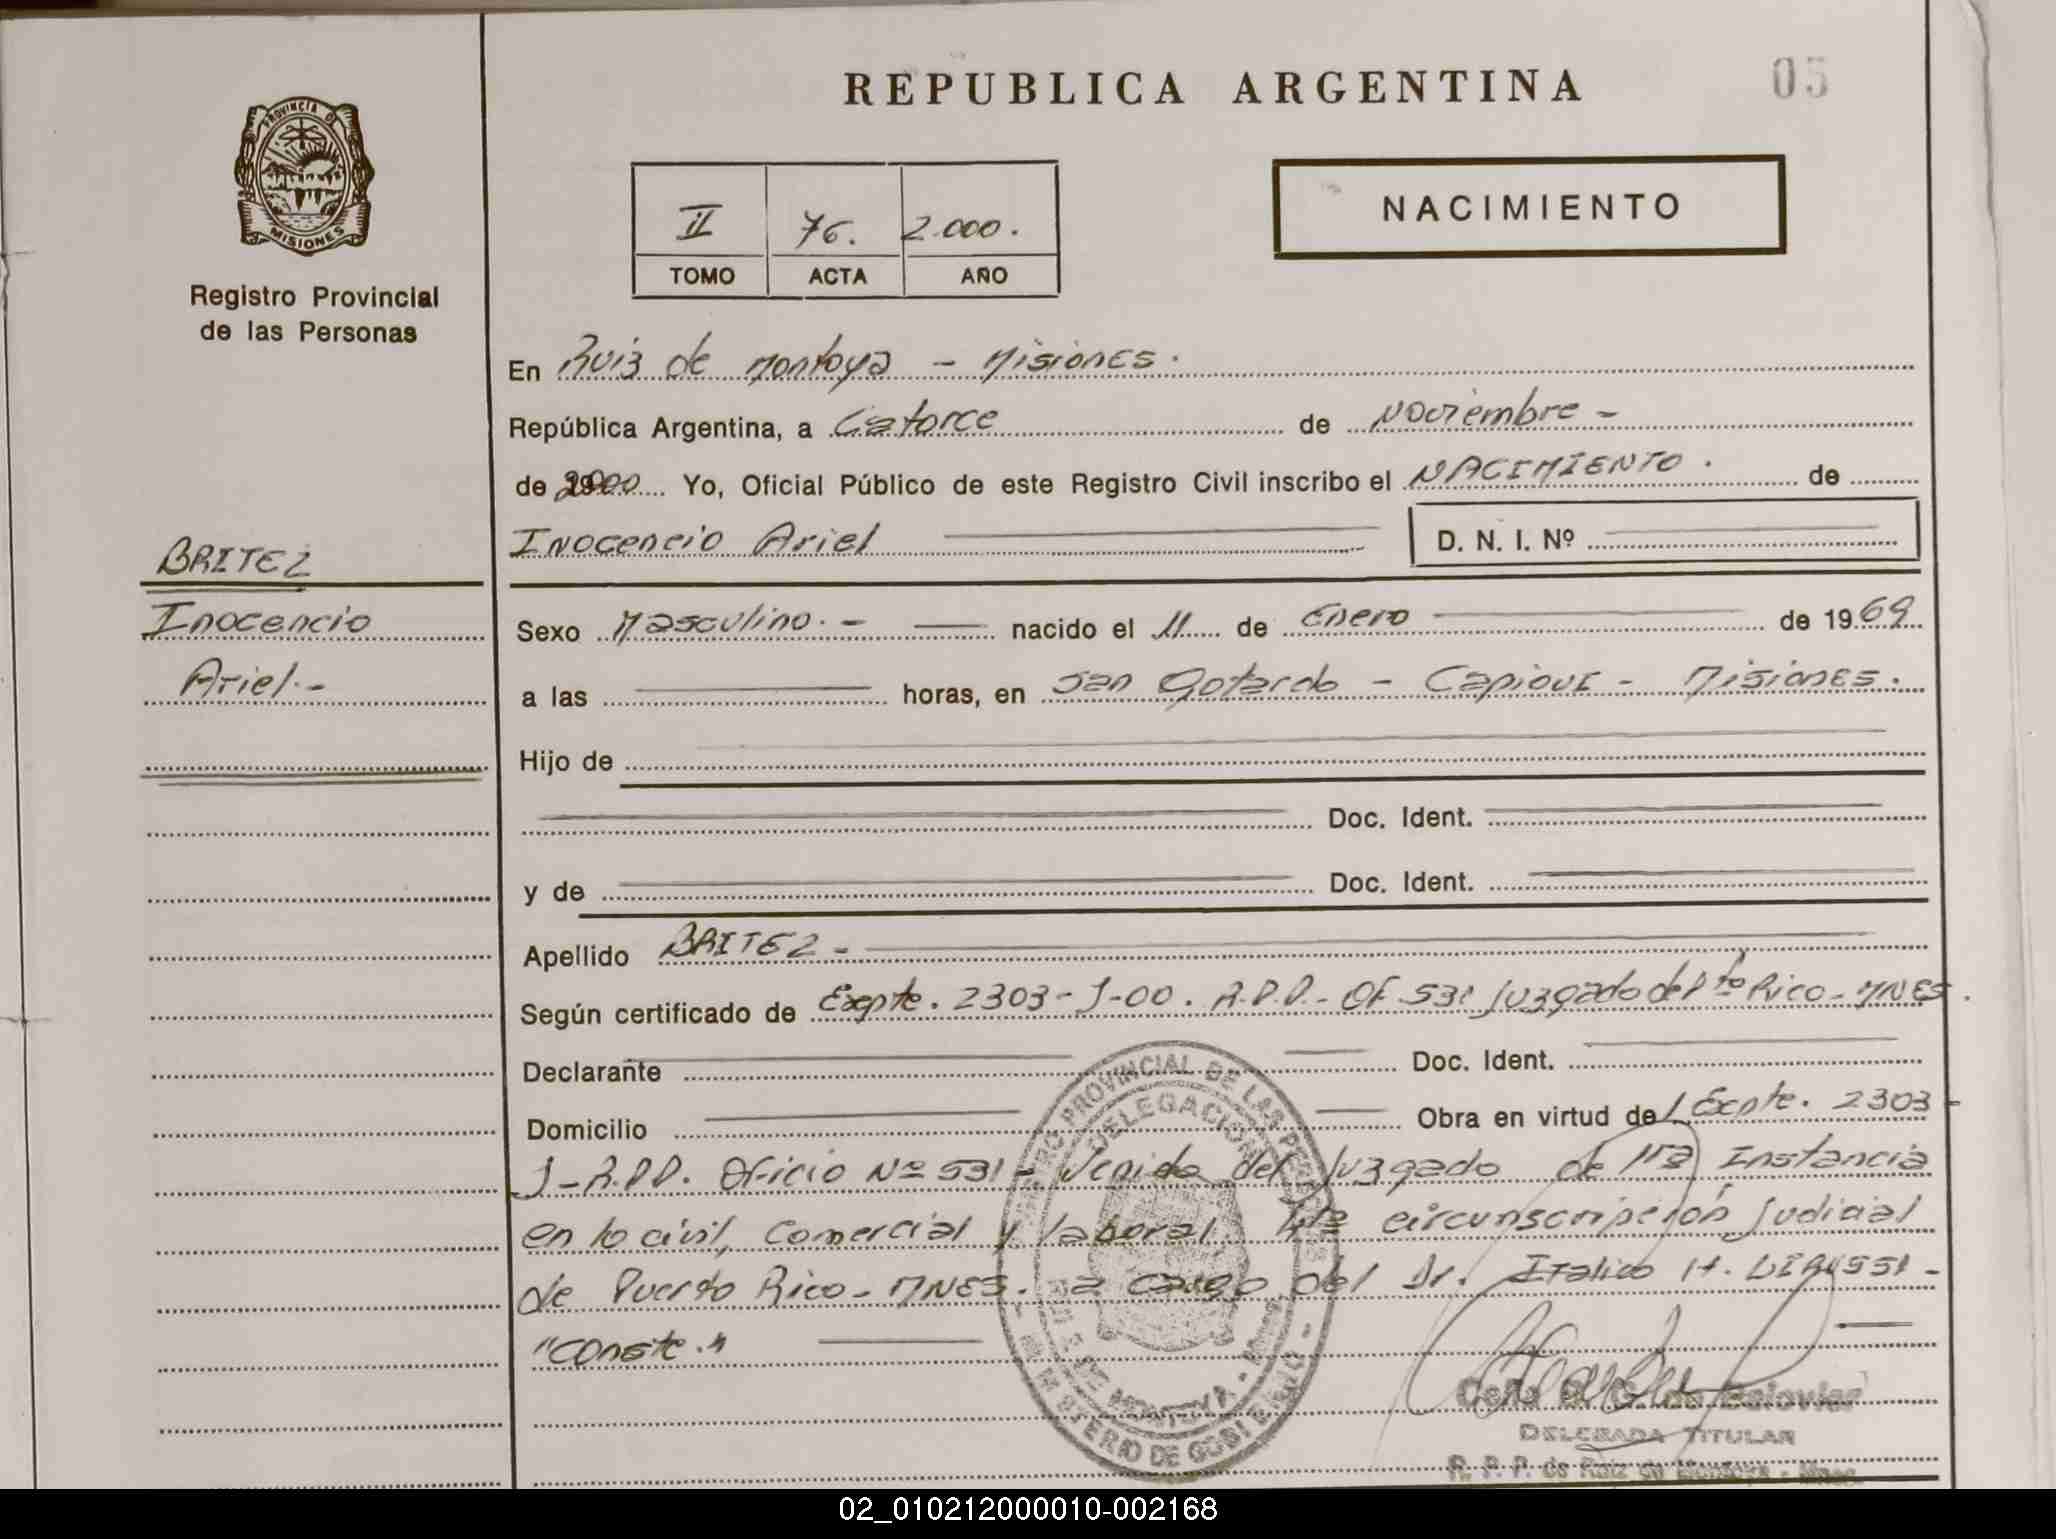 REPUBLICA ARGENTINA
05
PROVINCIA DE
MISIONES
Registro Provincial
de las Personas
II 76. 2.000.
TOMO ACTA AÑO
NACIMIENTO
En Ruiz de Montoya - Misiones.
República Argentina, a Catorce de Noviembre -
de 2000 Yo, Oficial Público de este Registro Civil inscribo el NACIMIENTO. de
Inocencio Ariel D. N. I. Nº
BRITEZ
Inocencio
Ariel.-
Sexo Masculino.- nacido el 11 de Enero de 1969
a las horas, en San Gotardo - Capiovi - Misiones.
Hijo de
Doc. Ident.
y de Doc. Ident.
Apellido BRITEZ -
Según certificado de Expte. 2303-J-00. R.P.P.- OF. 531 Juzgado de Pto Rico - MNES.
Declarante Doc. Ident.
Domicilio Obra en virtud del Expte. 2303 -
J-R.P.P. Oficio Nº 531- Venido del Juzgado de 1ra Instancia
en lo civil, Comercial y laboral 4ta circunscripción Judicial
de Puerto Rico - MNES. a cargo del Dr. Italico H.
"Conste."
REGISTRO PROVINCIAL DE LAS PERSONAS
DELEGACION
RUIZ DE MONTOYA - Mnes
MINISTERIO DE GOBIERNO
DELEGADA TITULAR
R. P. P. de Ruiz de Montoya - Mnes.
02_010212000010-002168